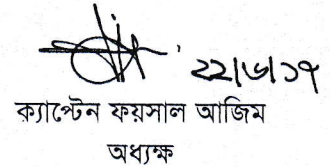 ২২|৬|১৭
ক্যাপ্টেন ফয়সাল আজিম
অধ্যক্ষ